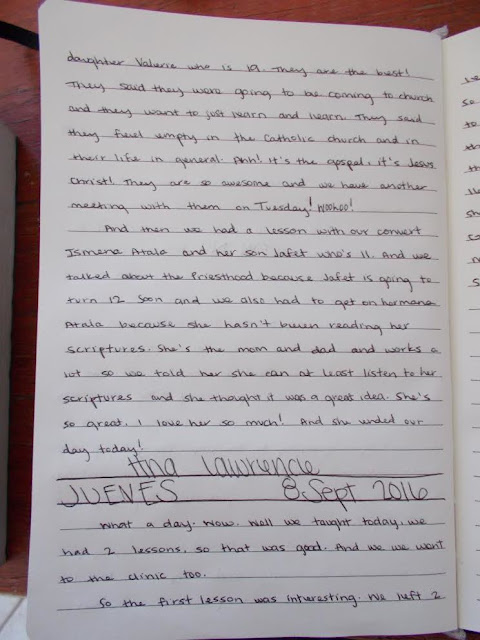 daughter Valerie who is 19. They are the best!
They said they were going to be coming to church
and they want to just learn and learn. They said
they feel empty in the Catholic church and in
their life in general. Ahh! It's the gospel, it's Jesus
Christ! They are so awesome and we have another
meeting with them on Tuesday! Woohoo!
And then we had a lesson with our convert
Ismena Atala and her son Jafet who's 11. And we
talked about the Priesthood because Jafet is going to
turn 12 soon and we also had to get on hermana
Atala because she hasn't been reading her
scriptures. She's the mom and dad and works a
lot so we told her she can at least listen to her
scriptures and she thought it was a great idea. She's
so great, I love her so much! And she ended our
day today!
Hna Lawrence
JUEVES 8 Sept 2016
What a day. Wow. Well we taught today, we
had 2 lessons, so that was good. And we we went
to the clinic too.
So the first lesson was interesting. We left 2